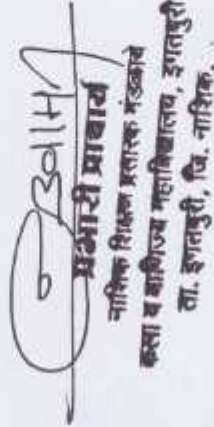 प्रभारी प्राचार्य
नाशिक शिक्षण प्रसारक मंडळाचे
कला व वाणिज्य महाविद्यालय, इगतपुरी
ता. इगतपुरी, जि. नाशिक.